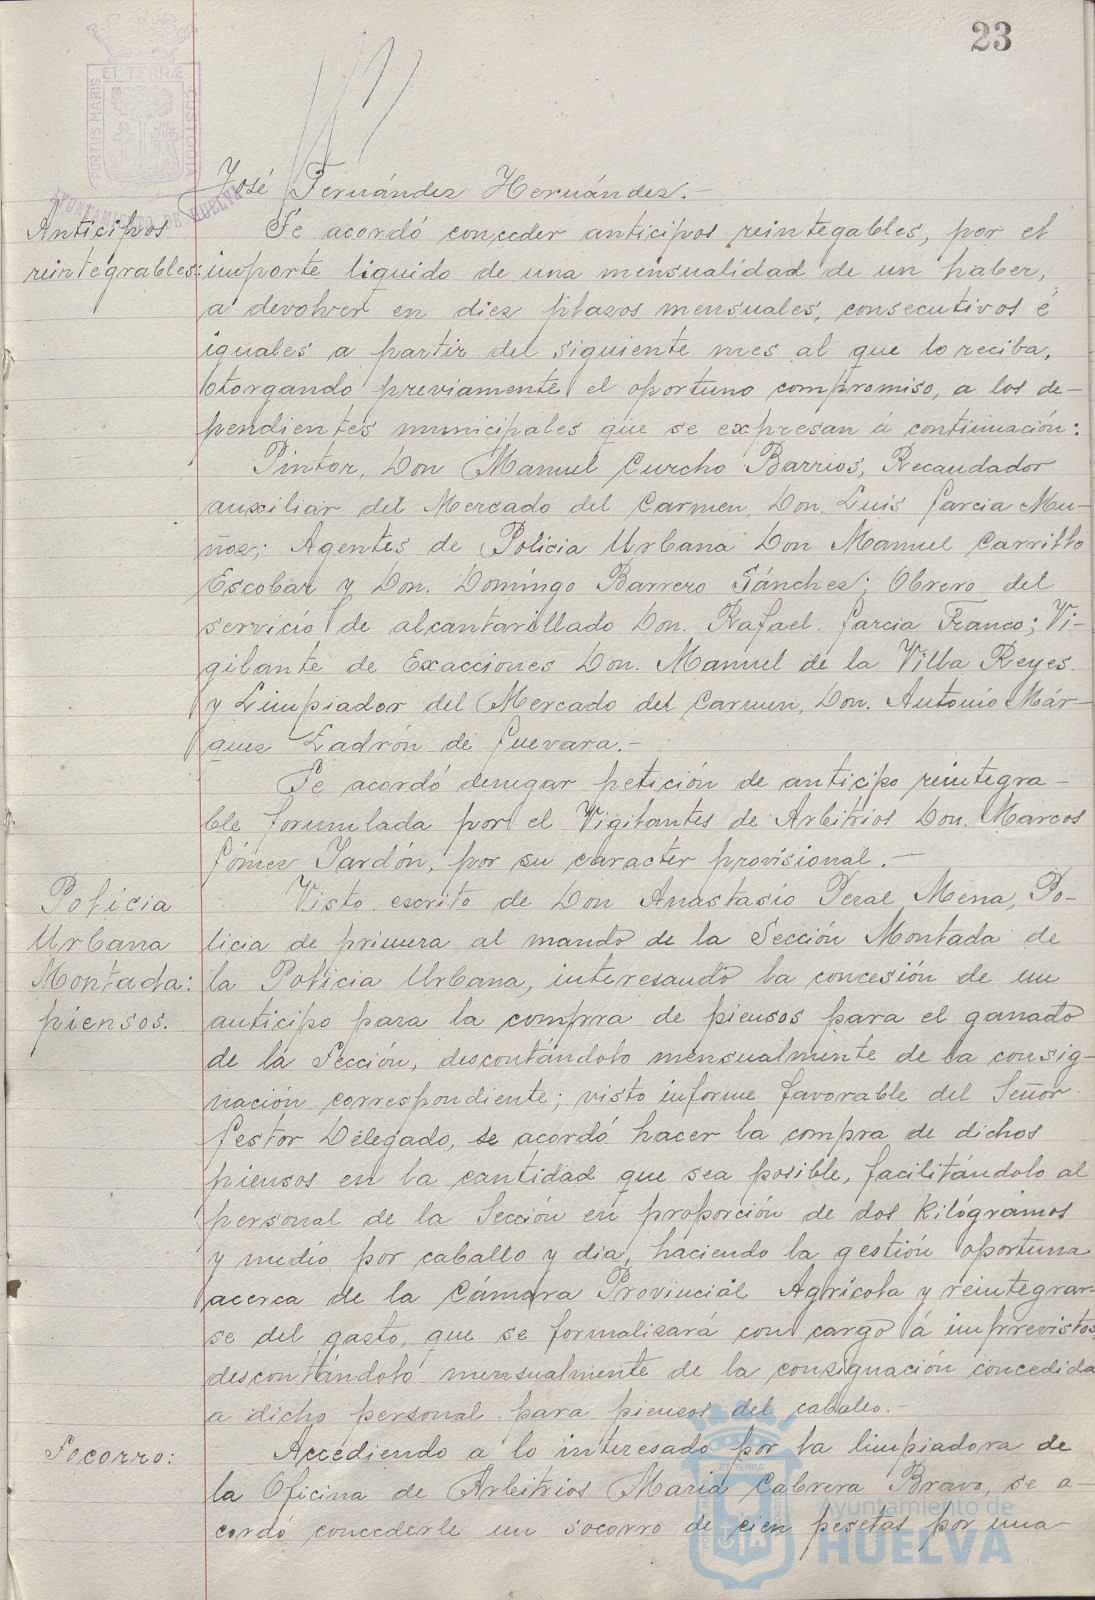 23
ET TERRÆ
PORTUS MARIS
CUSTODIA
AYUNTAMIENTO DE HUELVA
José Fernández Hernández.-
Anticipos
reintegrables:
Se acordó conceder anticipos reintegables, por el
importe liquido de una mensualidad de un haber,
a devolver en diez plazos mensuales, consecutivos é
iguales a partir del siguiente mes al que lo reciba,
otorgando previamente el oportuno compromiso, a los de-
pendientes municipales que se expresan á continuación:
Pintor, Don Manuel Curcho Barrios, Recaudador
auxiliar del Mercado del Carmen, Don Luis Garcia Mu-
ñoz; Agentes de Policia Urbana Don Manuel Carrillo
Escobar y Don Domingo Barrero Sánchez; Obrero del
servicio de alcantarillado Don. Rafael Garcia Franco; Vi-
gilante de Exacciones Don. Manuel de la Villa Reyes
y Limpiador del Mercado del Carmen, Don. Antonio Már-
quez Ladrón de Guevara.-
Se acordó denegar petición de anticipo reintegra-
ble formulada por el Vigilantes de Arbitrios Don. Marcos
Gómez Jardón, por su caracter provisional.-
Policia
Urbana
Montada:
piensos.
Visto escrito de Don Anastasio Peral Mena, Po-
licia de primera al mando de la Sección Montada de
la Policia Urbana, interesando la concesión de un
anticipo para la compra de piensos para el ganado
de la Sección, descontándolo mensualmente de la consig-
nación correspondiente; visto informe favorable del Señor
Gestor Delegado, se acordó hacer la compra de dichos
piensos en la cantidad que sea posible, facilitándolo al
personal de la Sección en proporción de dos kilógramos
y medio por caballo y dia, haciendo la gestión oportuna
acerca de la Cámara Provincial Agrícola y reintegrar-
se del gasto, que se formalizará con cargo á imprevistos,
descontándolo mensualmente de la consignación concedida
a dicho personal para piensos del caballo.-
Socorro:
Accediendo a lo interesado por la limpiadora de
la Oficina de Arbitrios Maria Cabrera Bravo, se a-
cordó concederle un socorro de cien pesetas por una
Ayuntamiento de
HUELVA